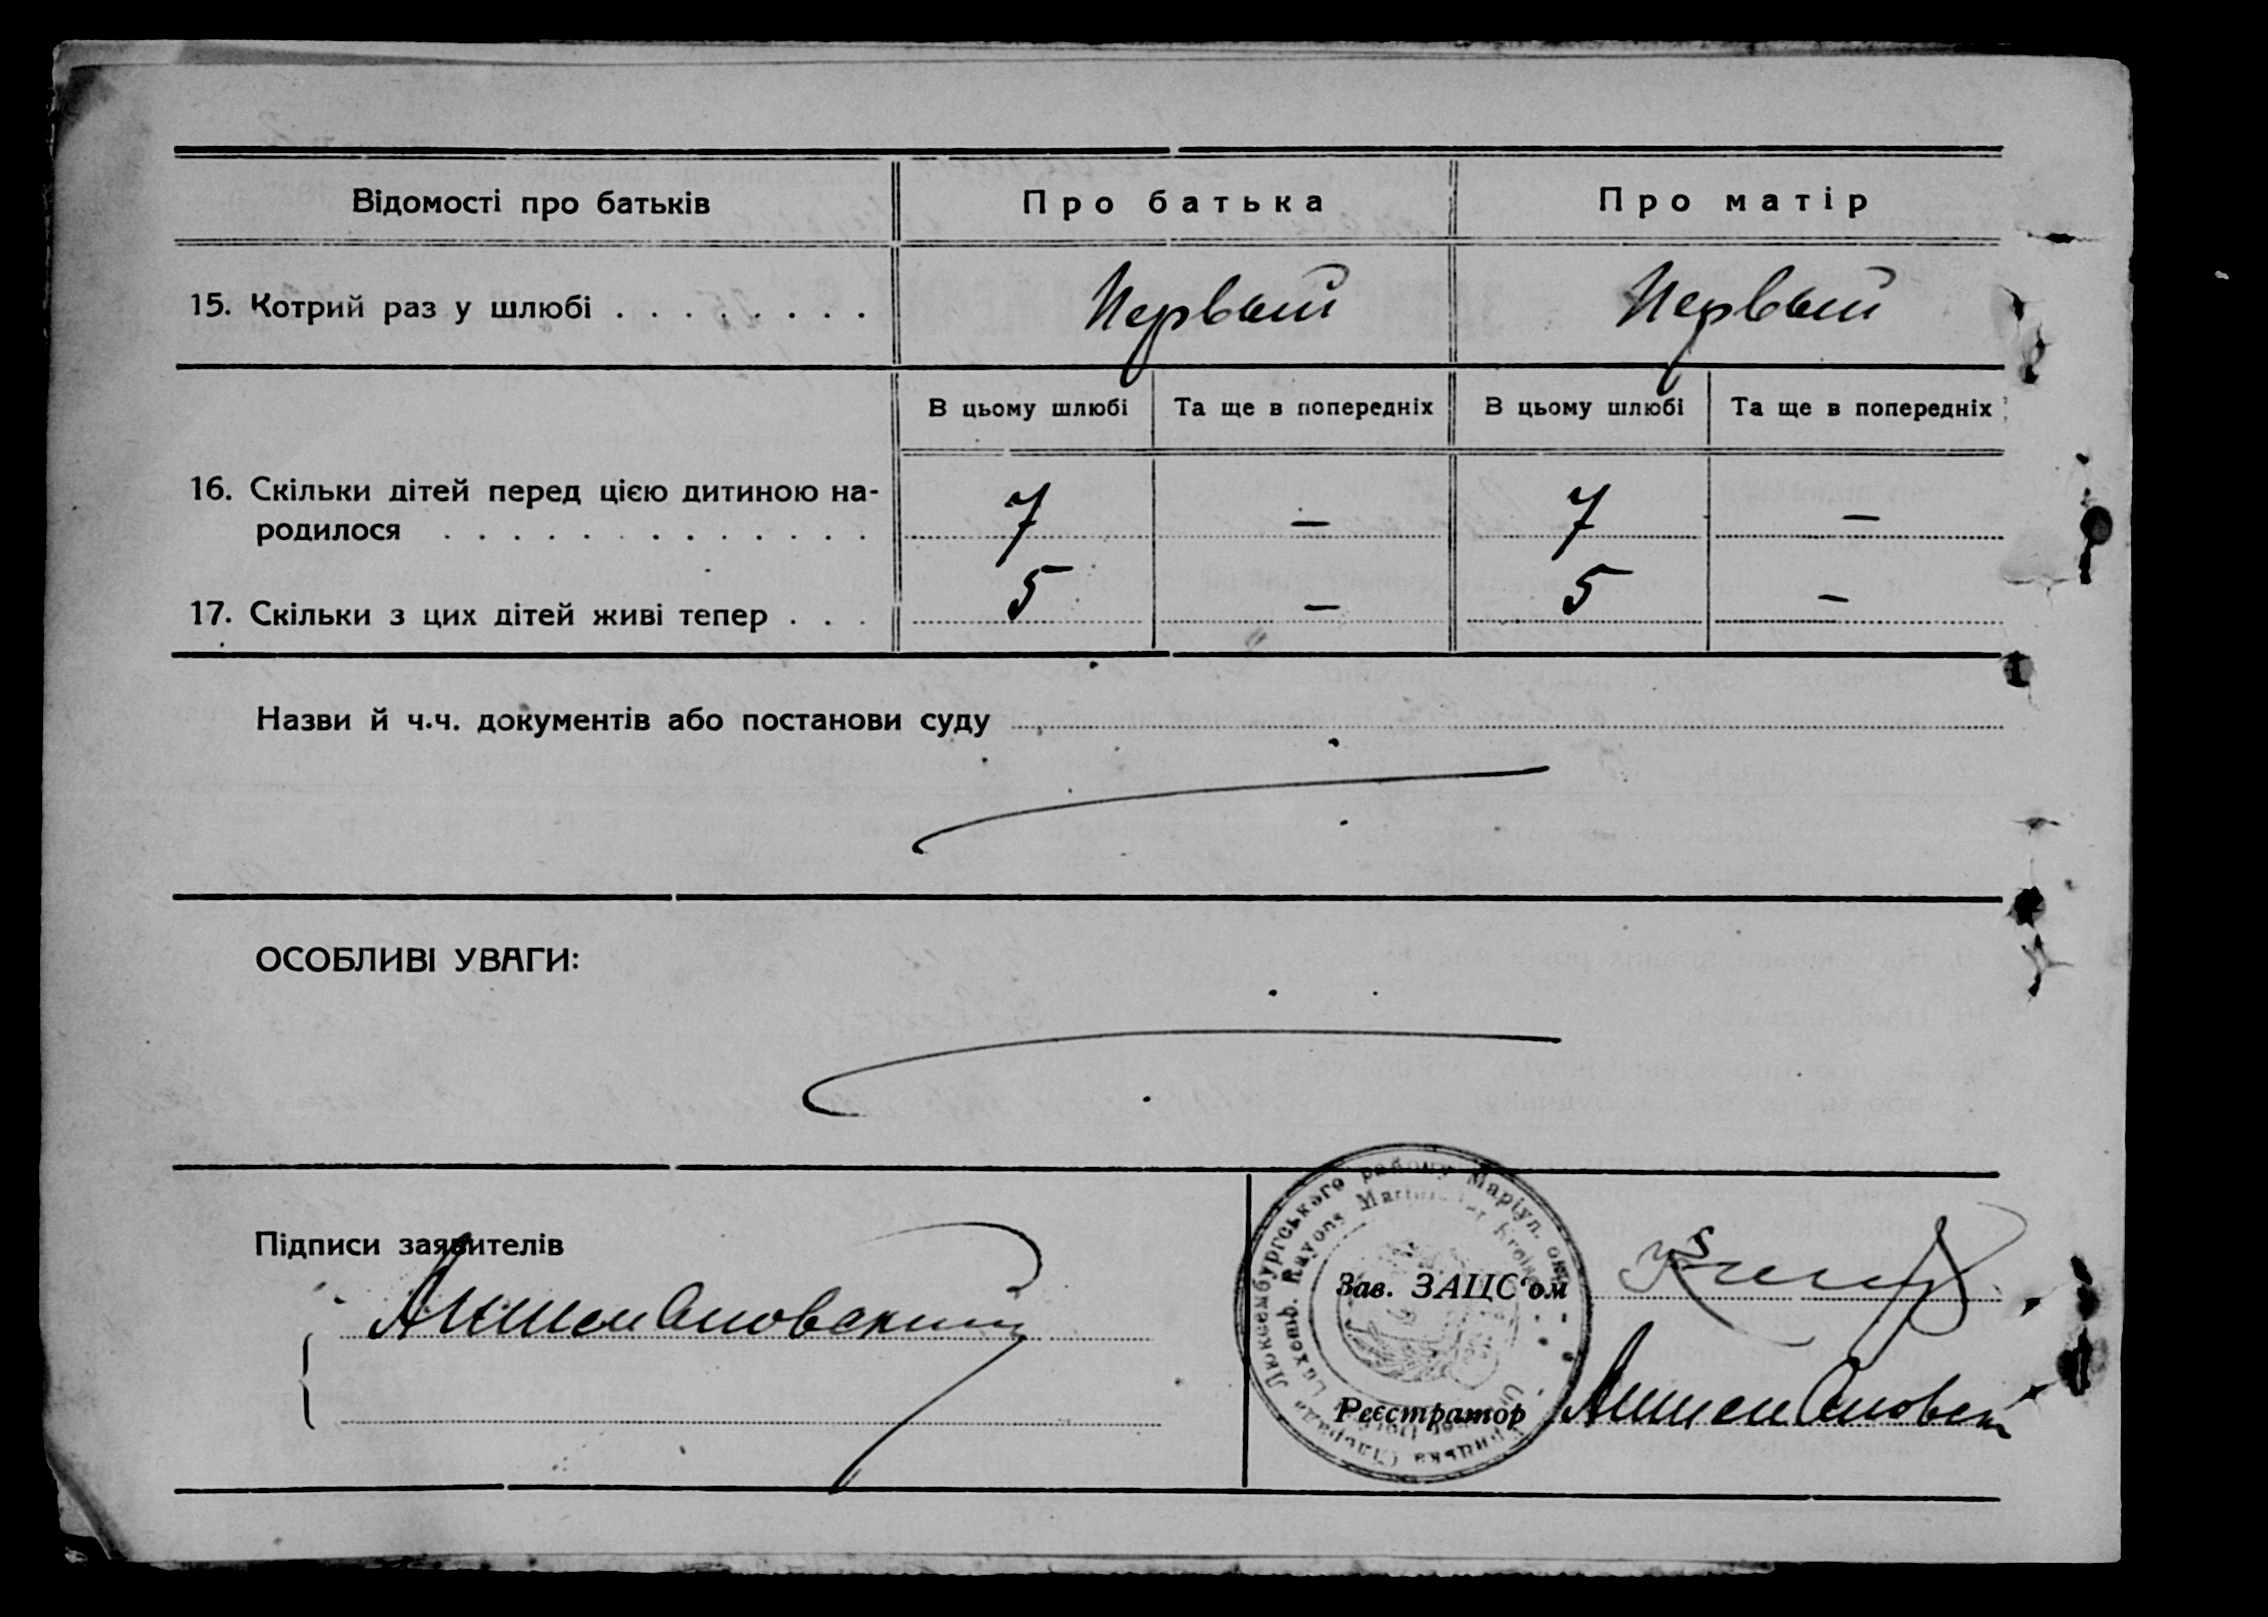 Відомості про батьків Про батька Про матір
15. Котрий раз у шлюбі . . . . . . . . Первый Первый
В цьому шлюбі Та ще в попередніх В цьому шлюбі Та ще в попередніх
16. Скільки дітей перед цією дитиною на-
родилося . . . . . . . . . . . . . 7 — 7 —
17. Скільки з цих дітей живі тепер . . . 5 — 5 —
Назви й ч.ч. документів або постанови суду
ОСОБЛИВІ УВАГИ:
Люксембургського району Маріул. окр.
Luxemb. Rayons
Підписи заявителів
Зав. ЗАЦС'ом
Реєстратор